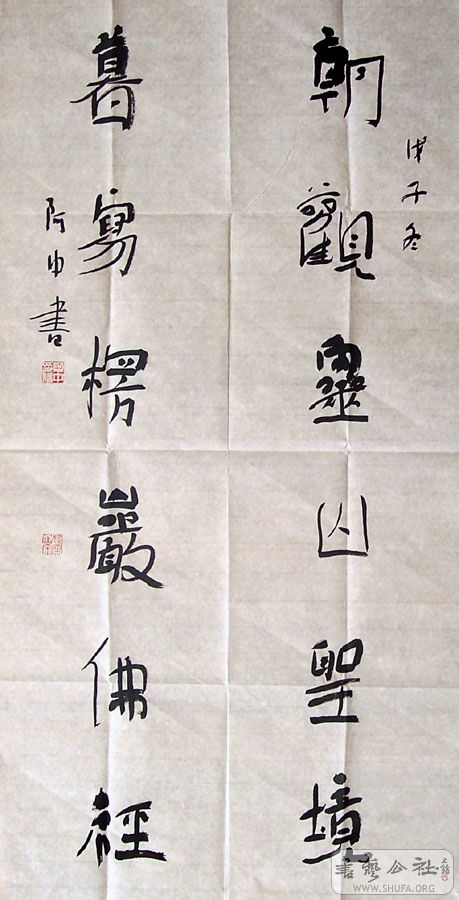 戊子冬
朝觀靈山聖境
暮寫楞嚴佛經
阿申書
書藝公社
WWW.SHUFA.ORG